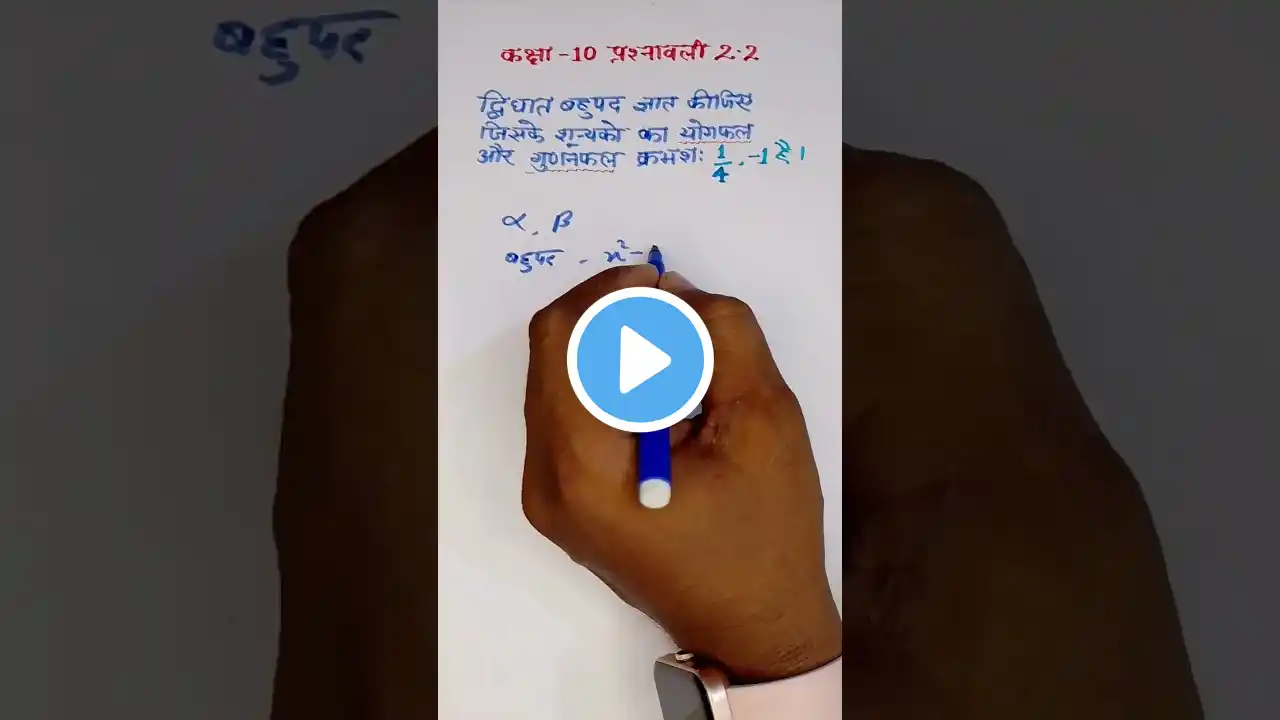 बहुपद
कक्षा -10 प्रश्नावली 2.2
द्विघात बहुपद ज्ञात कीजिए
जिसके शून्यको का योगफल
और गुणनफल क्रमशः 1/4, -1 है।
α, β
बहुपद = x² -